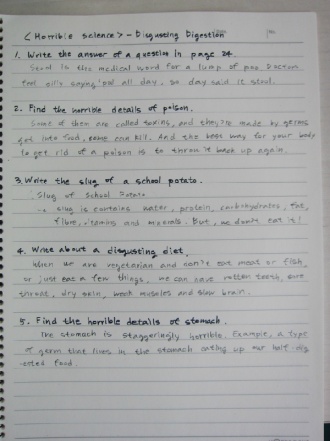 <Horrible science> - Disgusting Digestion
1. Write the answer of a question in page 24.
Stool is the medical word for a lump of poo. Doctors
feel silly saying 'poo' all day, so day said it stool.
2. Find the horrible details of poison.
Some of them are called toxins, and they're made by germs
got into food, some can kill. And the best way for your body
to get rid of a poison is to throw it back up again.
3. Write the slug of a school potato.
Slug of School Potato
→ slug is contains water, protein, carbohydrates, fat,
fibre, vitamins and minerals. But, we don't eat it!
4. Write about a disgusting diet.
When we are vegetarian and don't eat meat or fish,
or just eat a few things, we can have rotten teeth, sore
throat, dry skin, weak muscles and slow brain.
5. Find the horrible details of stomach.
The stomach is staggeringly horrible. Example, a type
of germ that lives in the stomach eating up our half-dig
ested food.